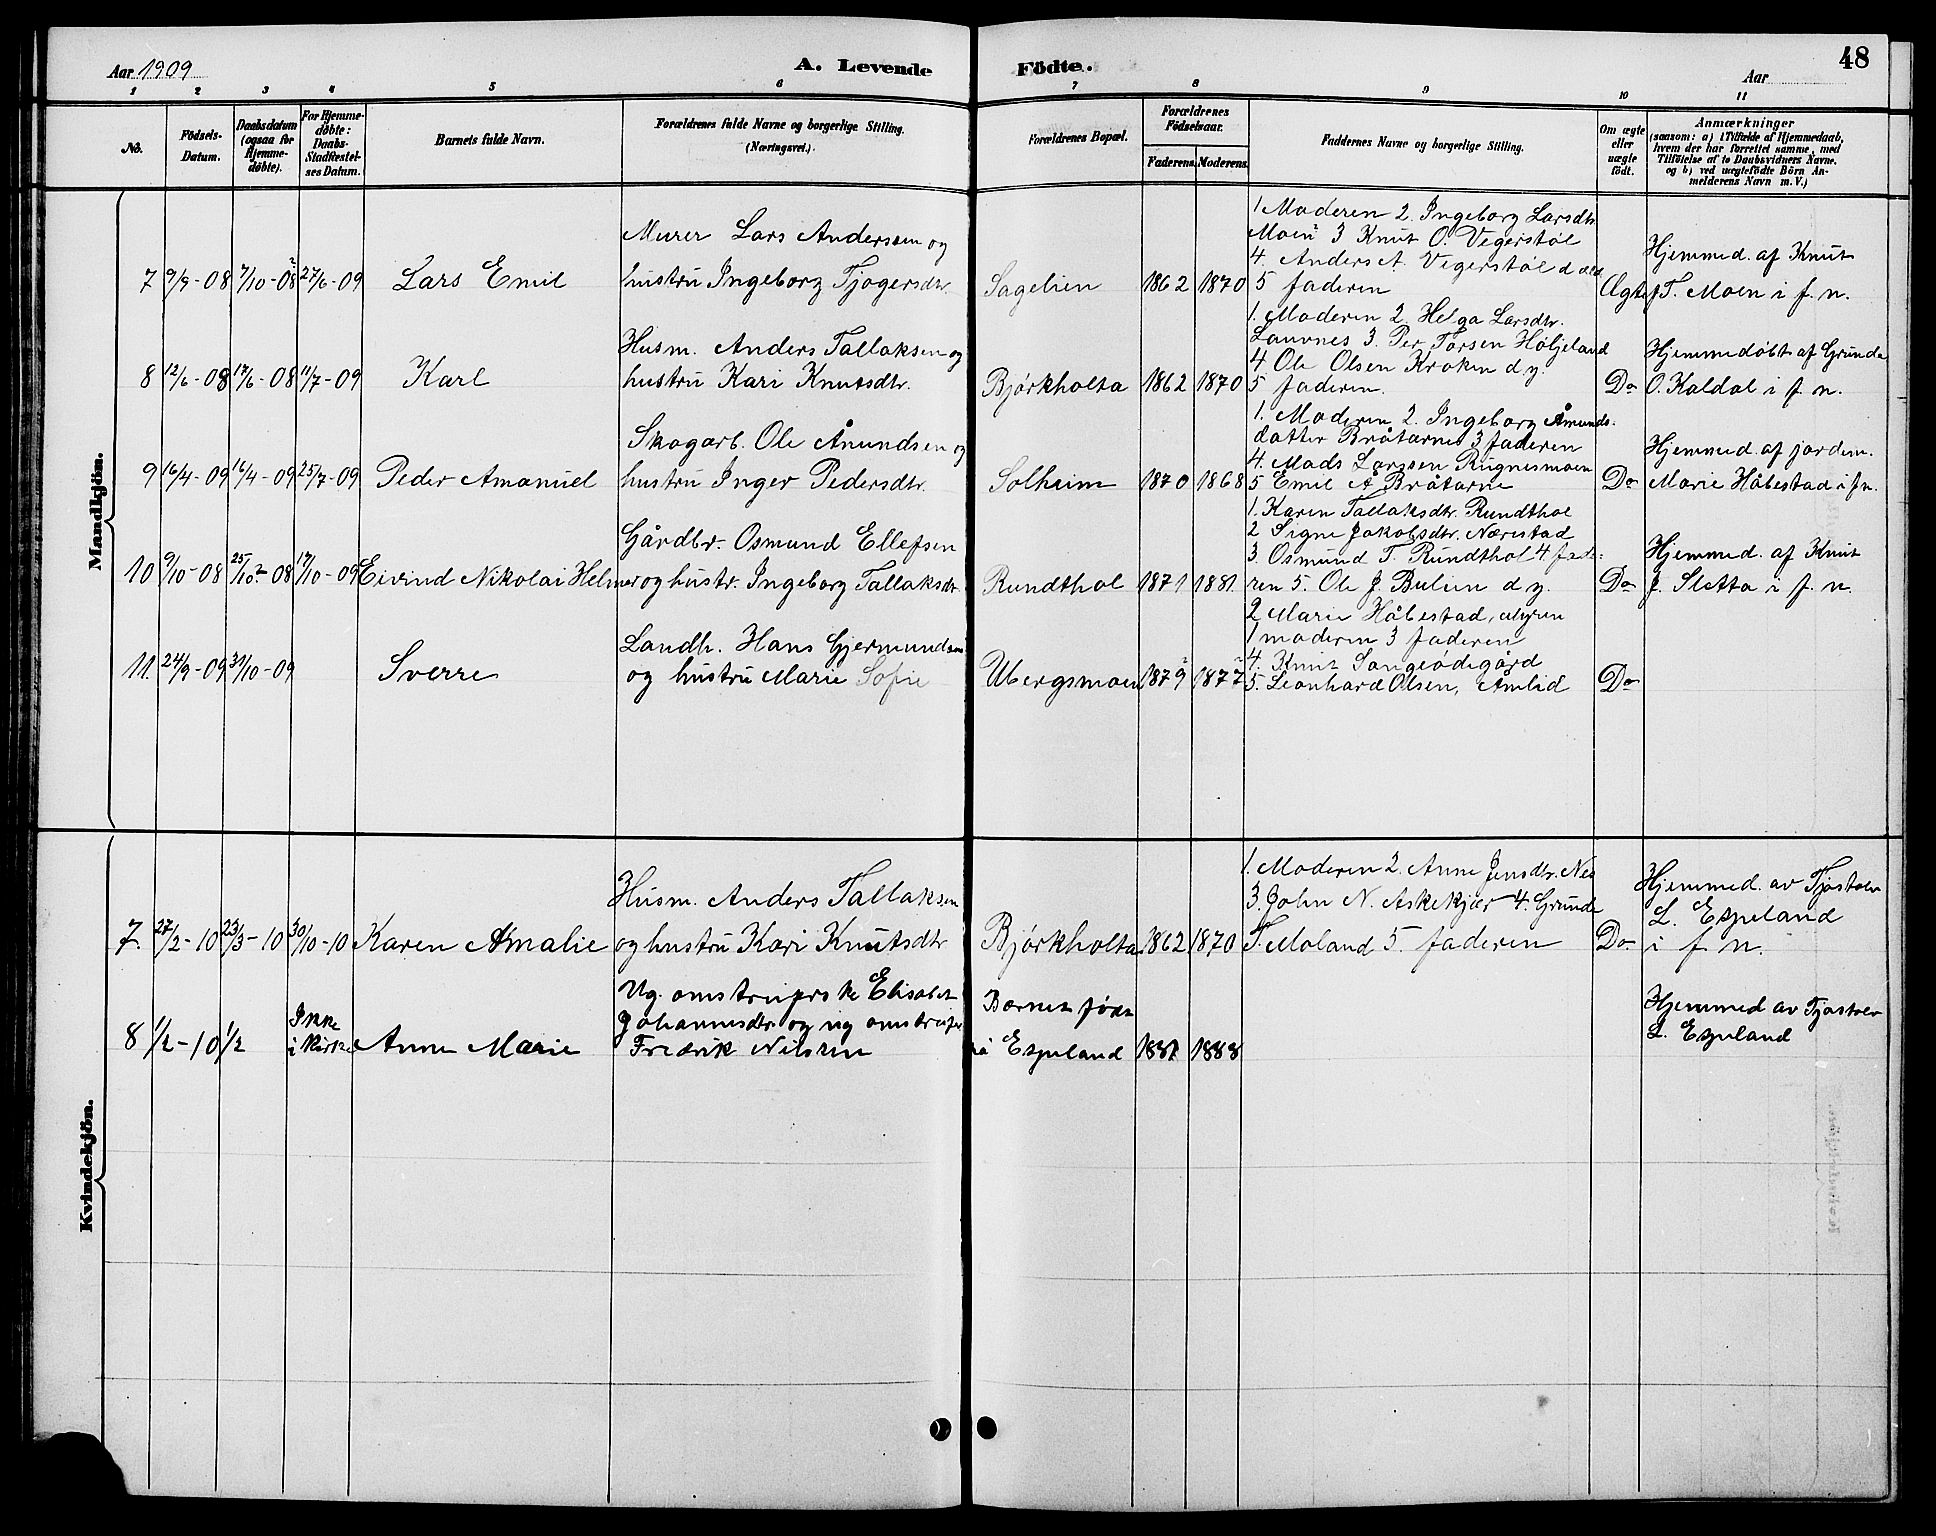 Aar 1909
A. Levende
Födte.
Aar
48
1 2 3 4 5 6 7 8 9 10 11
No.
Födsels-Datum.
Daabsdatum (ogsaa for Hjemme-døbte).
For Hjemme-døbte: Daabs-Stadfæstel-ses Datum.
Barnets fulde Navn.
Forældrenes fulde Navne og borgerlige Stilling. (Næringsvei.)
Forældrenes Bopæl.
Forældrenes Födselsaar.
Faderens. Moderens.
Faddernes Navne og borgerlige Stilling.
Om ægte eller uægte födt.
Anmærkninger
(saasom: a) i Tilfælde af Hjemmedaab,
hvem der har forrettet samme, med
Tilføielse af to Daabsvidners Navne.
og b) ved uægtefödte Börn An-
melderens Navn m.V.)
Mandkjön.
7 9/9-08 7/10-08 27/6-09 Lars Emil
Murer Lars Anderssen og
hustru Ingeborg Tjøgersdtr.
Sagelien 1862 1870
1 Moderen 2. Ingeborg Larsdtr
Moen 3 Knut O. Vegerstøl
4. Anders A. Vegerstøl d æld
5 faderen
Ægte
Hjemmed. af Knut
T. Moen i f. n.
8 12/6-08 17/6-08 11/7-09 Karl
Husm. Anders Tallaksen og
hustru Kari Knutsdtr.
Bjørkholta 1862 1870
1. Moderen 2. Helga Larsdtr.
Lauvnes 3. Per Torsen Høljeland
4 Ole Olsen Kroken d y.
5 faderen.
Do
Hjemmedøbt af Grunde
O. Kaldal i f. n.
9 16/4-09 16/4-09 25/7-09 Peder Amanuel
Skogarb. Ole Ånundsen og
hustru Inger Pedersdtr.
Solheim 1870 1868
1. Moderen 2. Ingeborg Åmunds.
datter Bråtarne 3 faderen
4. Mads Larssen Rugnesmoen
5 Emil A Bråtarne
Do
Hjemmed. af jordm.
Marie Håbestad i f n.
10 9/10-08 25/10-08 17/10-09 Eivind Nikolai Helmer
Gårdbr. Osmund Ellefsen
og hustr. Ingeborg Tallaksdtr.
Rundthol 1871 1881
1. Karen Tallaksdtr. Rundthol
2 Signe Jakobsdtr. Nærestad
3 Osmund T. Rundthol 4 fade-
ren 5. Ole J. Bulien d y.
Do
Hjemmed. af Knut
J. Sletta i f. n.
11. 24/9-09 31/10-09 Sverre
Landh. Hans Gjermundsen
og hustru Marie Sofie
Ubergsmoen 1879 1877
2 Marie Håbestad, Myren
1 moderen 3 faderen
4. Knut Songeødegård
5. Leonhard Olsen, Åmlid
Do
Kvindekjön.
7. 27/2-10 23/3-10 30/10-10 Karen Amalie
Husm. Anders Tallaksen
og hustru Kari Knutsdtr
Bjørkholta 1862 1870
1. Moderen 2. Anne Jensdtr. Nes
3. John N. Askekjær 4. Grunde
T. Moland 5. faderen
Do
Hjemmed. av Tjøstolv
L. Espeland
i f n.
8 1/2-10 1/2 Ikke i kirke Anne Marie
Ug. omstreiferske Elisabet
Johannesdtr og ug omstreifer
Fredrik Nilssen
Barnet født
på Espeland 1881 1888
Hjemmed av Tjøstolv
L. Espeland